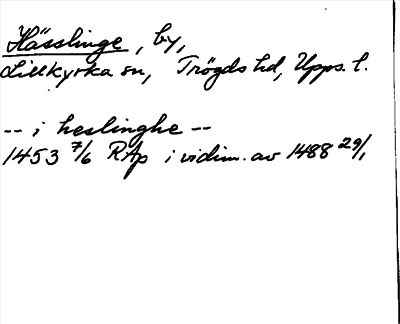 Hässlinge, by,
Lillkyrka sn, Trögds hd, Upps. l.
-- i heslinghe --
1453 7/6 RAp i vidim. av 1488 29/1